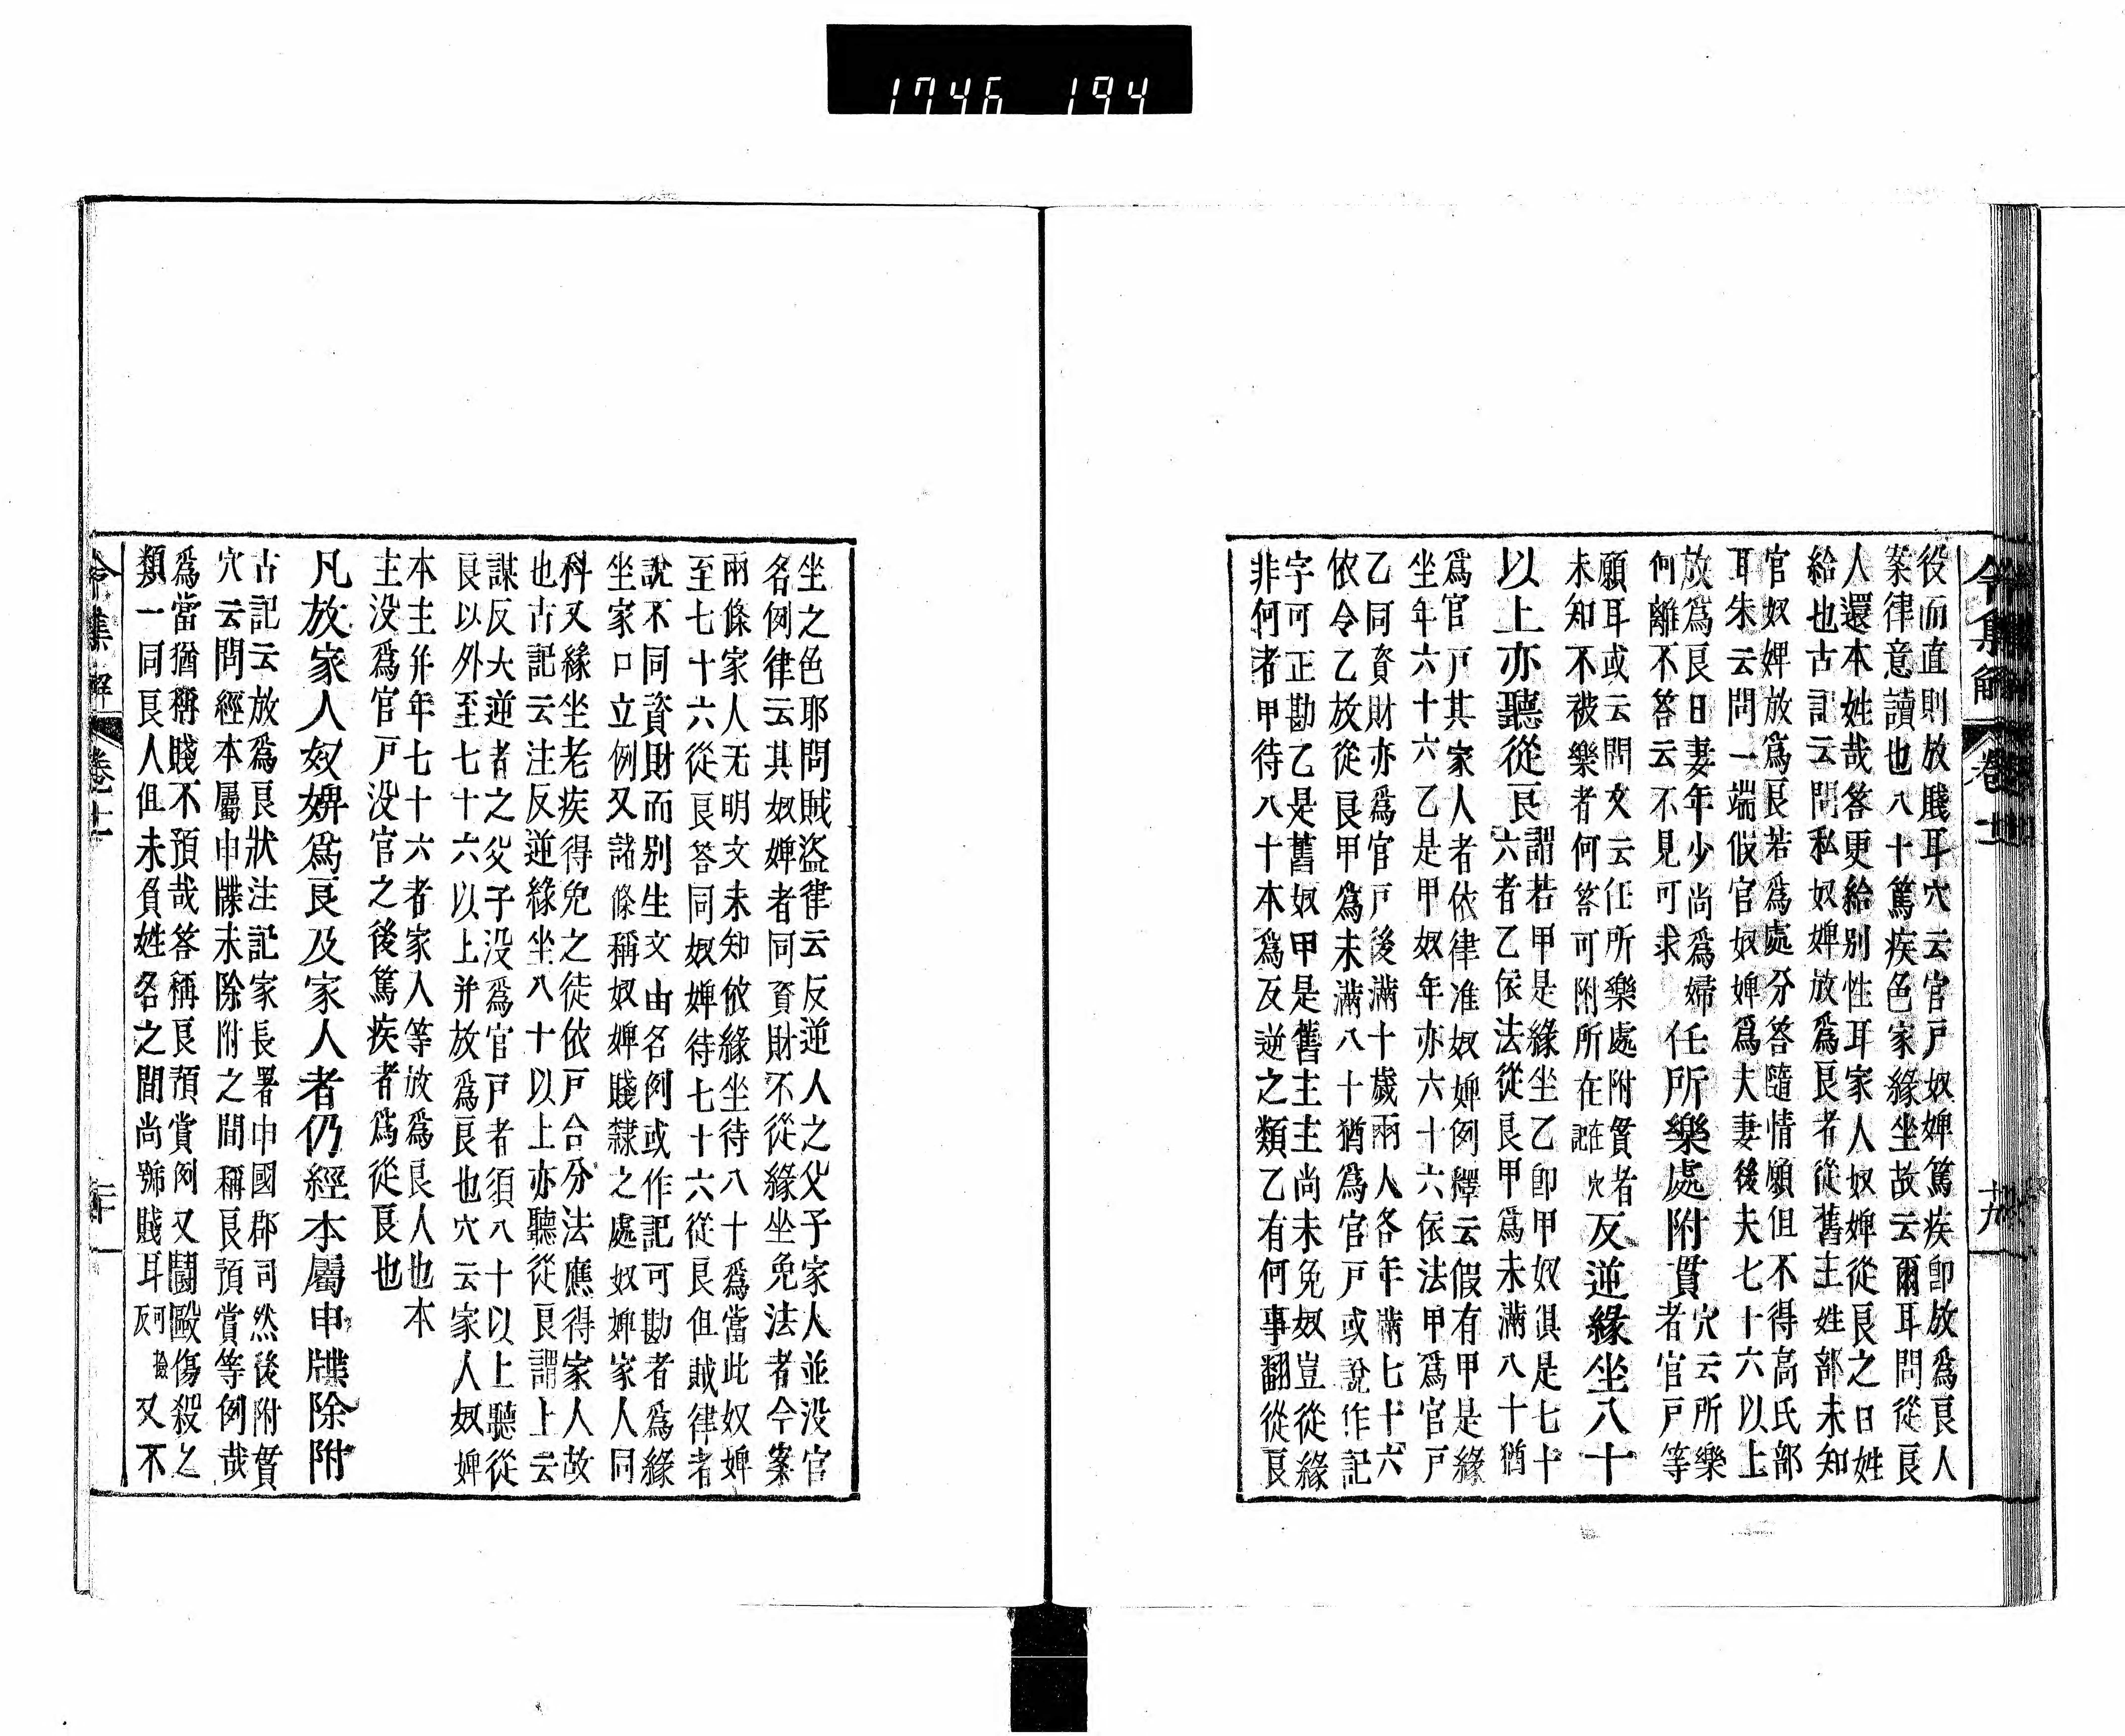 1746 194
令集解 卷十一 十九
役而直則放賤耳穴云官戸奴婢篤疾即放爲良人
案律意讀也八十篤疾色家緣坐故云爾耳問從良
人還本姓哉答更給別性耳家人奴婢從良之日姓
給也古記云問私奴婢放爲良者從舊主姓部未知
官奴婢放爲良若爲處分答隨情願但不得高氏部
耳朱云問一端假官奴婢爲夫妻後夫七十六以上
放爲良日妻年少尚爲婦
何離不答云不見可求
任所樂處附貫
穴云所樂
者官戸等
願耳或云問文云任所樂處附貫者
未知不被樂者何答可附所在
穴
記在
反逆緣坐八十
以上亦聽從良
謂若甲是緣坐乙即甲奴俱是七十
六者乙依法從良甲爲未滿八十猶
爲官戸其家人者依律准奴婢例釋云假有甲是緣
坐年六十六乙是甲奴年亦六十六依法甲爲官戸
乙同資財亦爲官戸後滿十歲兩人各年滿七十六
依令乙放從良甲爲未滿八十猶爲官戸或說作記
字可正勘乙是舊奴甲是舊主主尚未免奴豈從緣
非何者甲待八十本爲反逆之類乙有何事翻從良
坐之色耶問賊盜律云反逆人之父子家人並沒官
名例律云其奴婢者同資財不從緣坐免法者今案
兩條家人无明文未知依緣坐待八十爲當此奴婢
至七十六從良答同奴婢待七十六從良但賊律者
說不同資財而別生文由名例或作記可勘者爲緣
坐家口立例又諸條稱奴婢賤隸之處奴婢家人同
科又緣坐老疾得免之徒依戸合分法應得家人故
也古記云注反逆緣坐八十以上亦聽從良謂上云
謀反大逆者之父子沒爲官戸者須八十以上聽從
良以外至七十六以上并放爲良也穴云家人奴婢
本主并年七十六者家人等放爲良人也本
主沒爲官戸沒官之後篤疾者爲從良也
凡放家人奴婢爲良及家人者仍經本屬申牒除附
古記云放爲良狀注記家長署申國郡司然後附貫
穴云問經本屬申牒未除附之間稱良預賞等例哉
爲當猶稱賤不預哉答稱良預賞例又鬪毆傷殺之
類一同良人但未負姓名之間尚號賤耳
可撿
反
又不
令集解 卷十一 二十